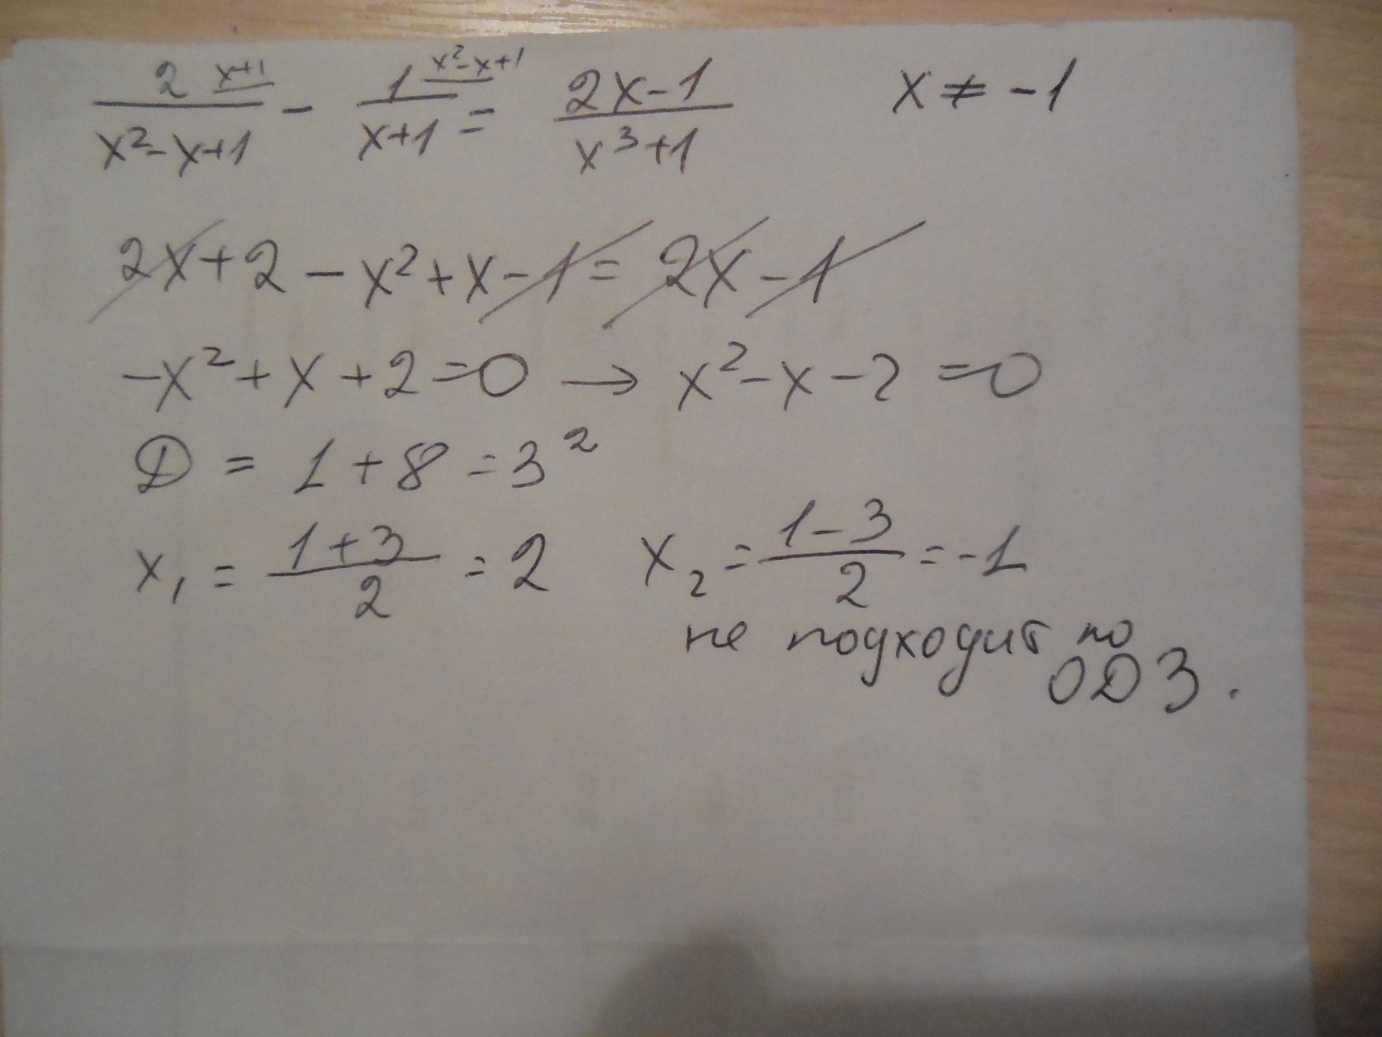 2 x+1 / x²-x+1 - 1 x²-x+1 / x+1 = 2x-1 / x³+1 x ≠ -1
2x+2-x²+x-1=2x-1
-x²+x+2=0 → x²-x-2=0
D = 1+8=3²
x₁ = 1+3 / 2 = 2 x₂ = 1-3 / 2 = -1
не подходит по
ОДЗ.